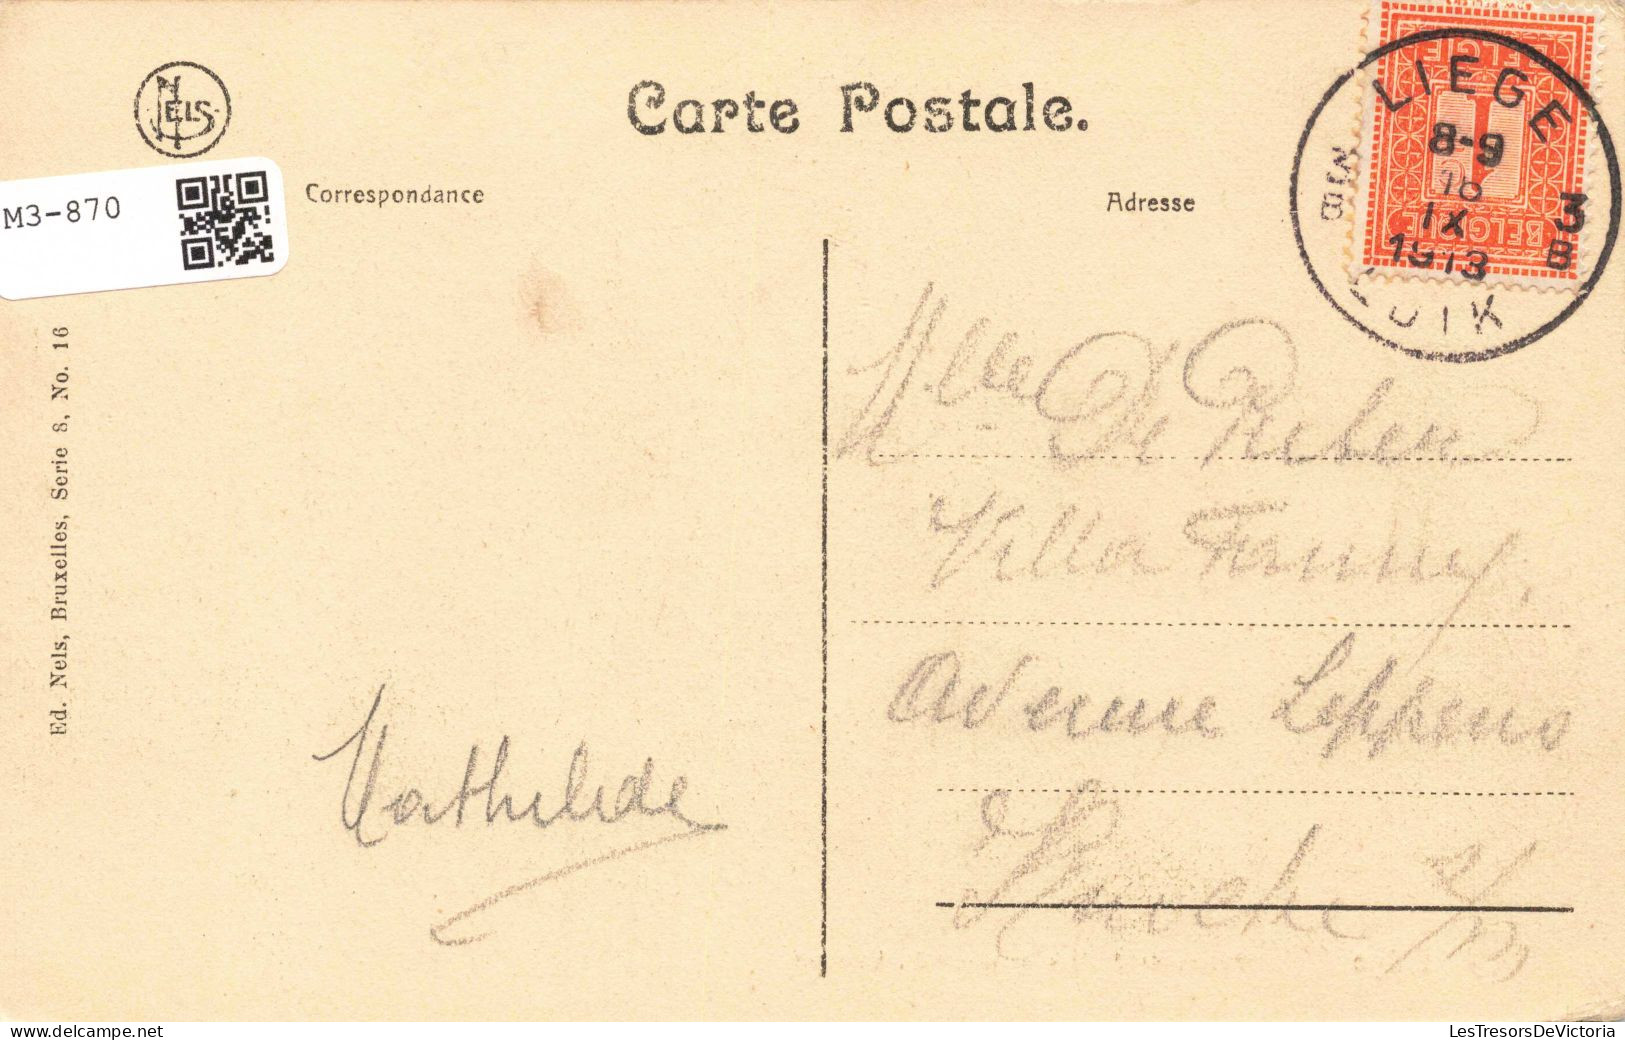 NELS
Carte Postale.
M3-870
Correspondance
Adresse
LIEGE
8-9
16
IX
1913
3
B
BELGIE
1
BELGIQUE
Ed. Nels, Bruxelles, Serie 8, No. 16
Mlle De
Villa Fanny,
Avenue Lippens
Knocke s/m
Mathilde
LesTresorsDeVictoria.com